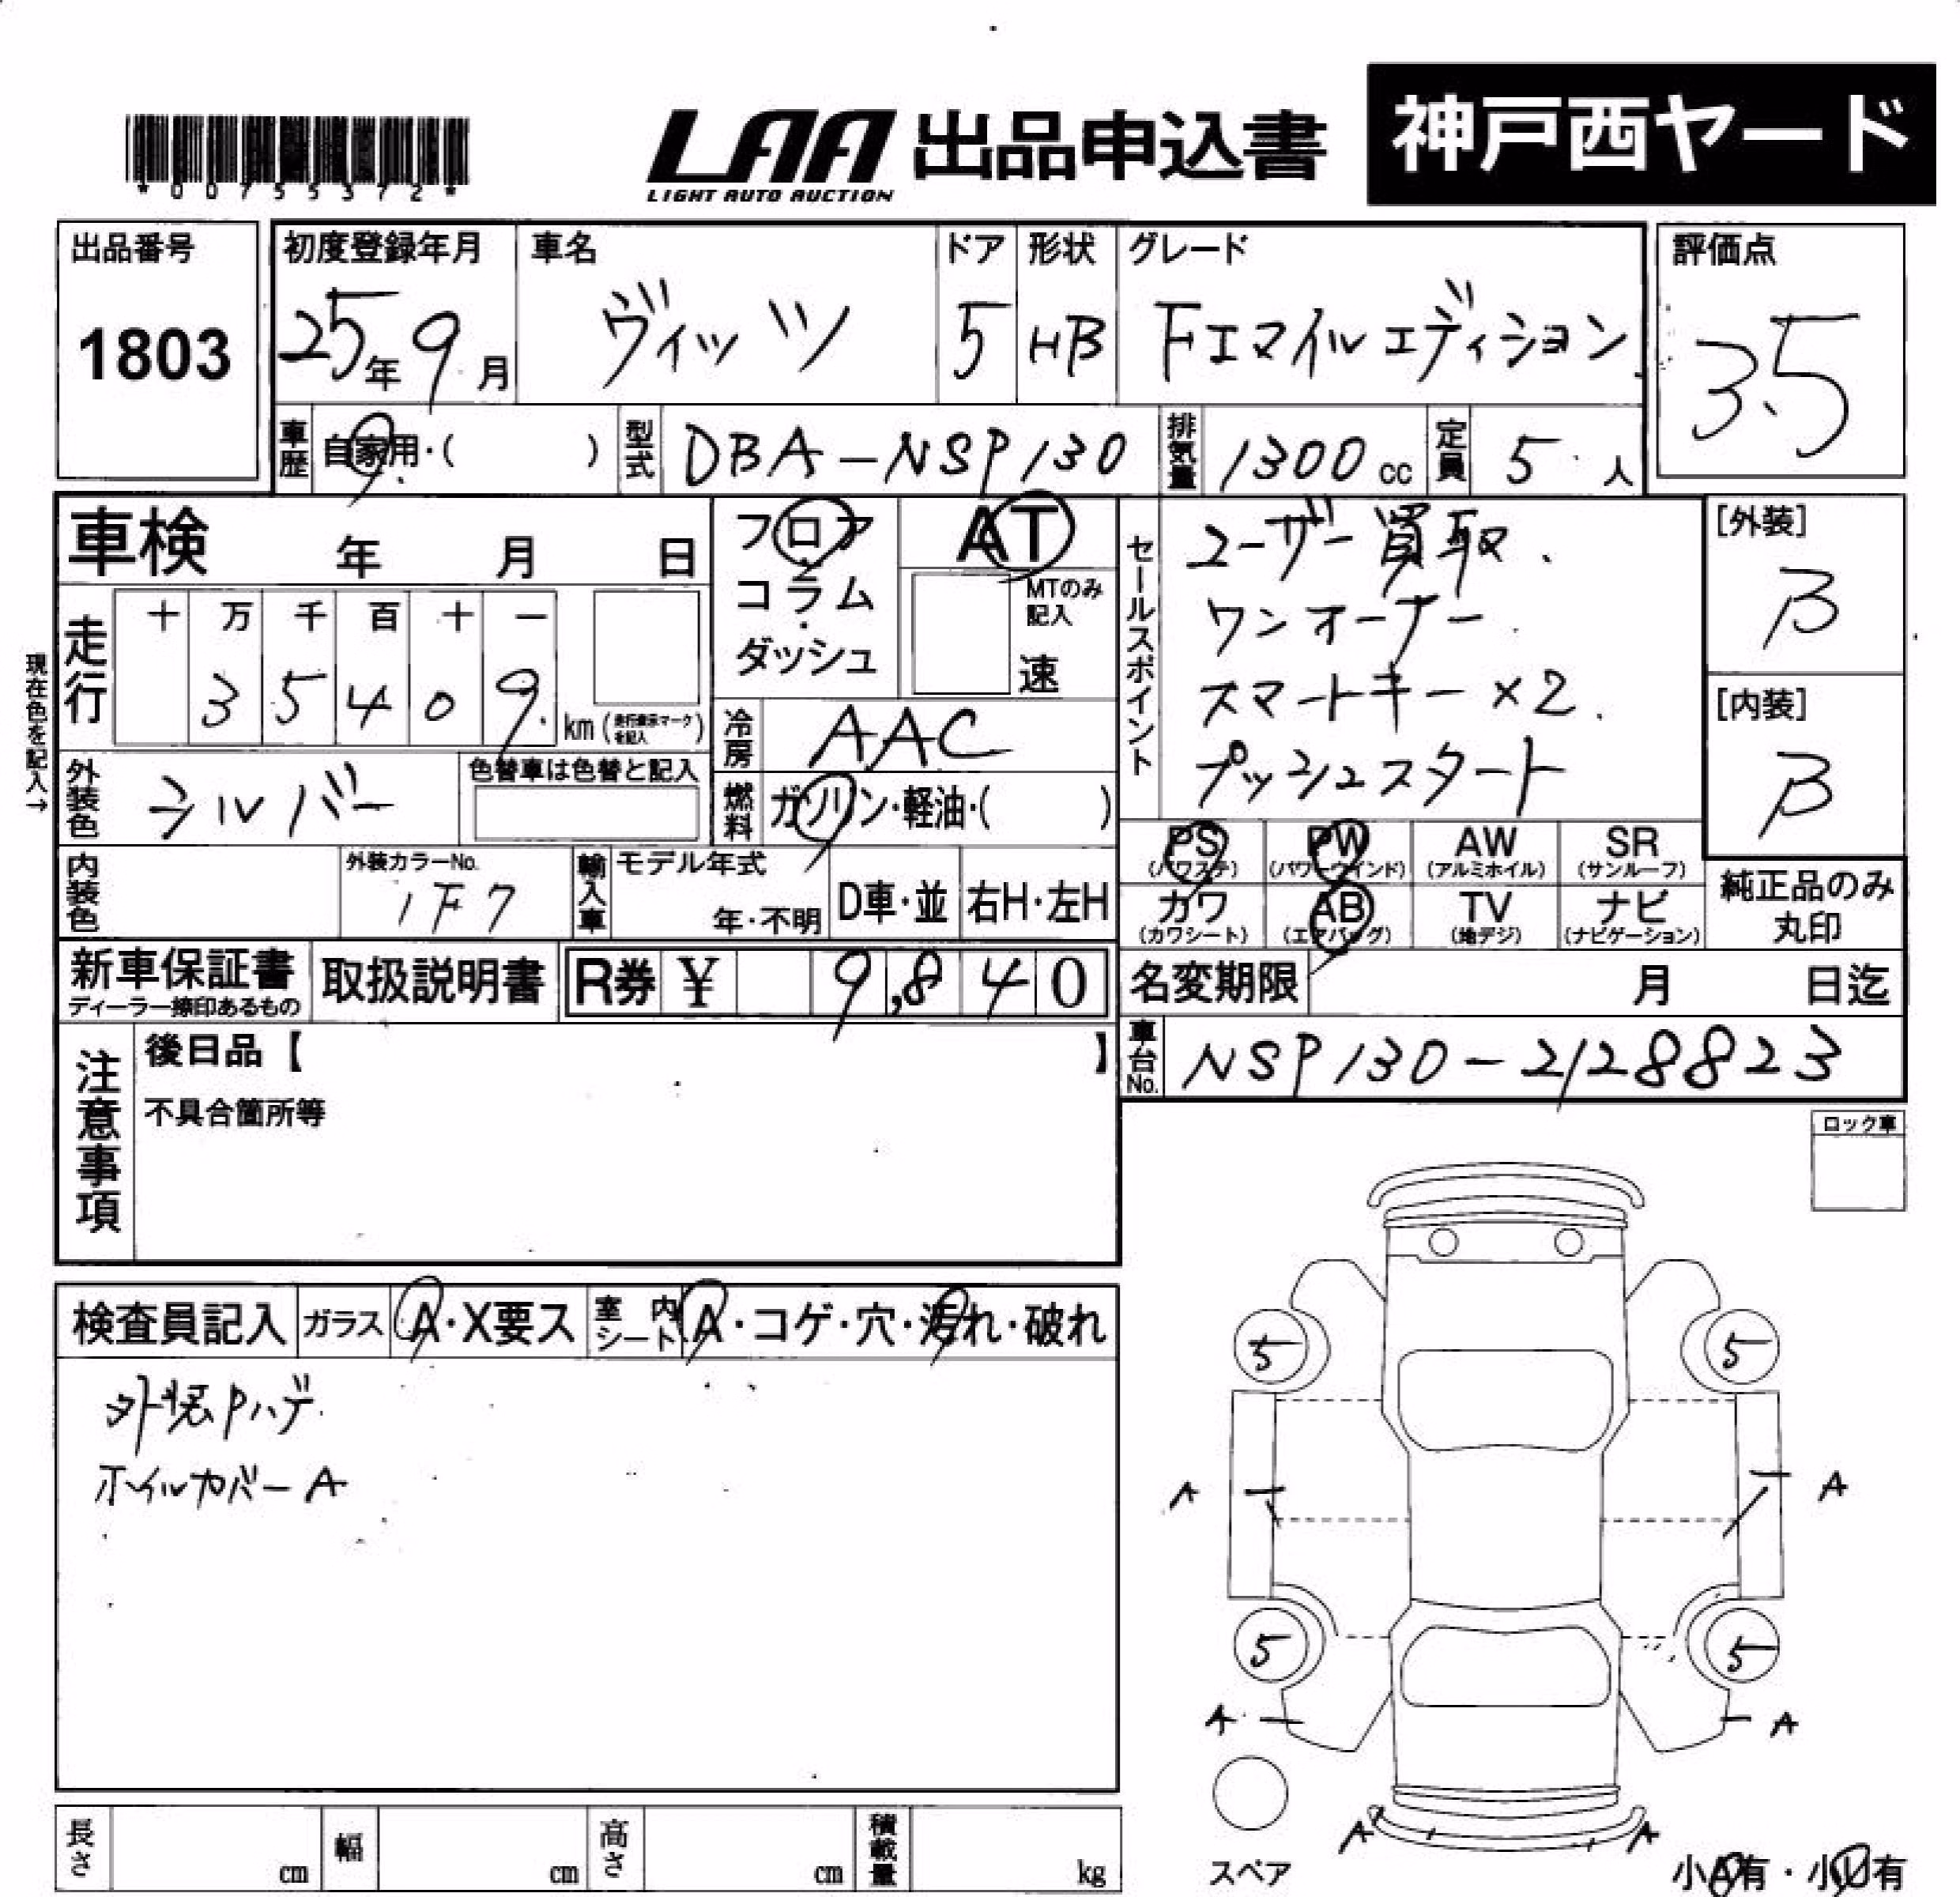 LAA 出品申込書 神戸西ヤード
LIGHT AUTO AUCTION
*00755372*
出品番号 初度登録年月 車名 ドア 形状 グレード 評価点
1803 25年9月 ヴィッツ 5 HB Fエマイルエディション 3.5
車歴 自家用・( ) 型式 DBA-NSP130 排気量 1300cc 定員 5人
車検 年 月 日
フロア
コラム
ダッシュ
AT
MTのみ記入
速
セールスポイント
ユーザー買取.
ワンオーナー
スマートキー×2.
プッシュスタート
[外装]
B
[内装]
B
現在色を記入→
走行 十 万 千 百 十 一
3 5 4 0 9 km(走行表示マークを記入)
冷房 AAC
外装色 シルバー 色替車は色替と記入
燃料 ガソリン・軽油・( )
PS PW AW SR
(パワステ) (パワーウインド) (アルミホイル) (サンルーフ)
カワ AB TV ナビ
(カワシート) (エアバッグ) (地デジ) (ナビゲーション)
純正品のみ
丸印
内装色 外装カラーNo. 1F7 輸入車 モデル年式 年・不明 D車・並 右H・左H
新車保証書 取扱説明書 R券 ¥ 9,840 名変期限 月 日迄
ディーラー捺印あるもの
注意事項 後日品【 】
車台No. NSP130-2128823
不具合箇所等
ロック車
検査員記入 ガラス A・X要ス 室内シート A・コゲ・穴・汚れ・破れ
外装Pハゲ
ホイルカバーA
5 5
A A
5 5
A A
A A
スペア 小A有・小U有
長さ cm 幅 cm 高さ cm 積載量 kg